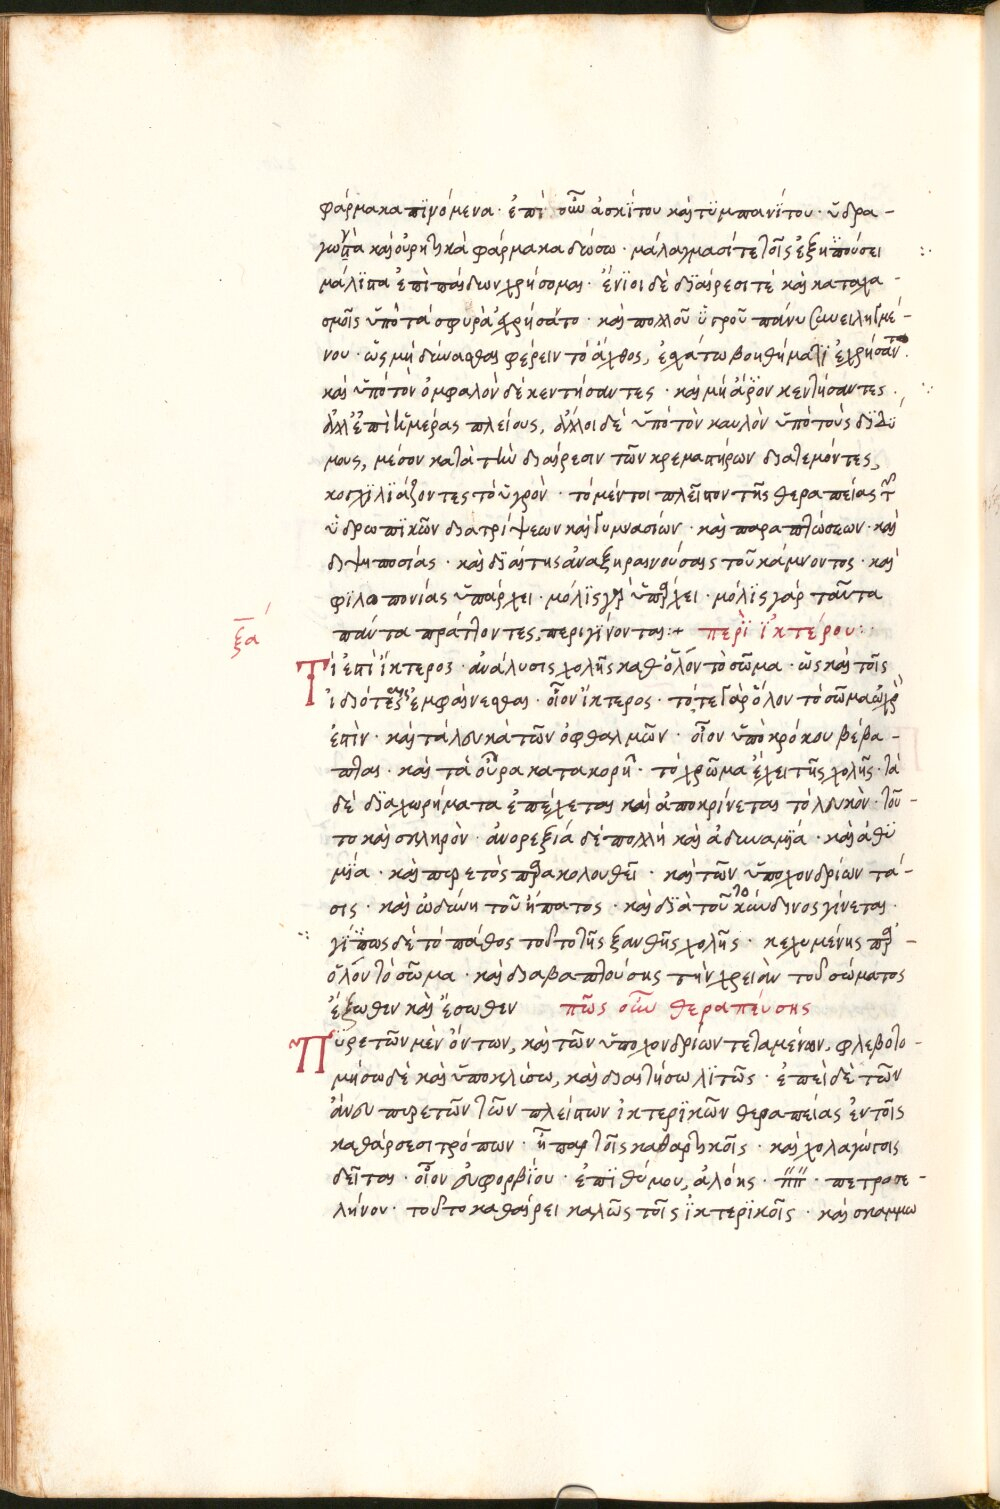 φάρμακα πϊνόμενα · ἐπὶ οὖν ἀσκΐτου καὶ τϋμπανΐτου · ὕδρα-
γωγὰ καὶ οὐρητικὰ φάρμακα δώσω · μάλαγμασί τε τοῖς ἐξϊποῦσει
μάλϊστα ἐπὶ πάντων χρήσομαι · ἔνϊοι δὲ διαίρεσι τὲ καὶ καταχα-
σμοῖς ὑπὸ τὰ σφυρὰ ἐχρήσατο · καὶ πολλοῦ ὑγροῦ πάνυ συνειλεγμέ-
νου · ὡς μὴ δύνασθαι φέρειν τὸ ἄχθος, ἐσχάτω βοηθήματι ἐχρήσαντο
καὶ ὑπὸ τὸν ὀμφαλὸν δὲ κεντήσαντες · καὶ μὴ ἆρον κεντήσαντες ·
ἀλλ' ἐπὶ ἡμέρας πλείους, ἄλλοι δὲ ὑπὸ τὸν καυλὸν ὑπὸ τοὺς διδύ
μους, μέσον κατὰ τὴν διαίρεσιν τῶν κρεμαστήρων διατεμόντες,
κοσχϊλϊάζοντες τὸ ὑγρὸν · τὸ μέντοι πλεῖστον τῆς θεραπείας τῶν
ὑδρωπϊκῶν διατρίψεων καὶ γυμνασίων · καὶ παραπλώσεων · καὶ
διψηποσίας · καὶ διαίτης ἀναξηραινούσαις τοῦ κάμνοντος · καὶ
φϊλοπονίας ὑπάρχει · μόλϊς γὰρ ὑπάρχει · μόλϊς γάρ ταῦτα
πάντα πράττοντες, περιγΐνονται :+ περὶ ἰκτέρου :
ξα
Τί ἐστὶ ἴκτερος · ἀνάλυσις χολῆς καθ' ὅλον τὸ σῶμα · ὡς καὶ τοῖς
ἰδιότες ἐμφαίνεσθαι · οἷον ἴκτερος · τότε γὰρ ὅλον τὸ σῶμα ὠχρὸν
ἐστὶν · καὶ τὰ λευκὰ τῶν ὀφθαλμῶν · οἷον ὑπὸ κρόκου βέβα-
πται · καὶ τὰ οὖρα κατακορῆ · τὸ χρῶμα ἔχει τῆς χολῆς · τὰ
δὲ διαχωρήματα ἐπέχεται καὶ ἀποκρίνεται τὸ λευκὸν · τοῦ-
το καὶ σκληρὸν · ἀνορεξία δὲ πολλὴ καὶ ἀδυναμΐα · καὶ ἀθϋ
μΐα · καὶ πυρετὸς παρακολουθεῖ · καὶ τῶν ὑποχονδρίων τά-
σις · καὶ ὠδύνη τοῦ ἥπατος · καὶ διὰ τοῦτο κίνδυνος γίνεται ·
γίπως δὲ τὸ πάθος τοῦτο τῆς ξανθῆς χολῆς · κεχυμένης παρ'-
ὅλον τὸ σῶμα · καὶ διαβαπτούσης τὴν χρειὰν τοῦ σώματος
ἔξωθεν καὶ ἔσωθεν πῶς οὖν θεραπεύσης
Πϋρετῶν μὲν ὄντων, καὶ τῶν ὑποχονδρίων τεταμένων, φλεβοτο-
μήσω δὲ καὶ ὑποκλίσω, καὶ διαιτήσω λϊτῶς · ἐπεὶ δὲ τῶν
ἄνευ πυρετῶν τῶν πλείστων ἰκτερϊκῶν θεραπείας ἐν τοῖς
καθάρσεσι τρόπων · ἢ παρ τοῖς καθαρτικοῖς · καὶ χολαγώγοις
δεῖται · οἷον εὐφορβΐου · ἐπϊθύμου, ἀλόης · πετροσε-
λήνον · τοῦτο καθαίρει καλῶς τοῖς ἰκτερϊκοῖς · καὶ σκαμμω